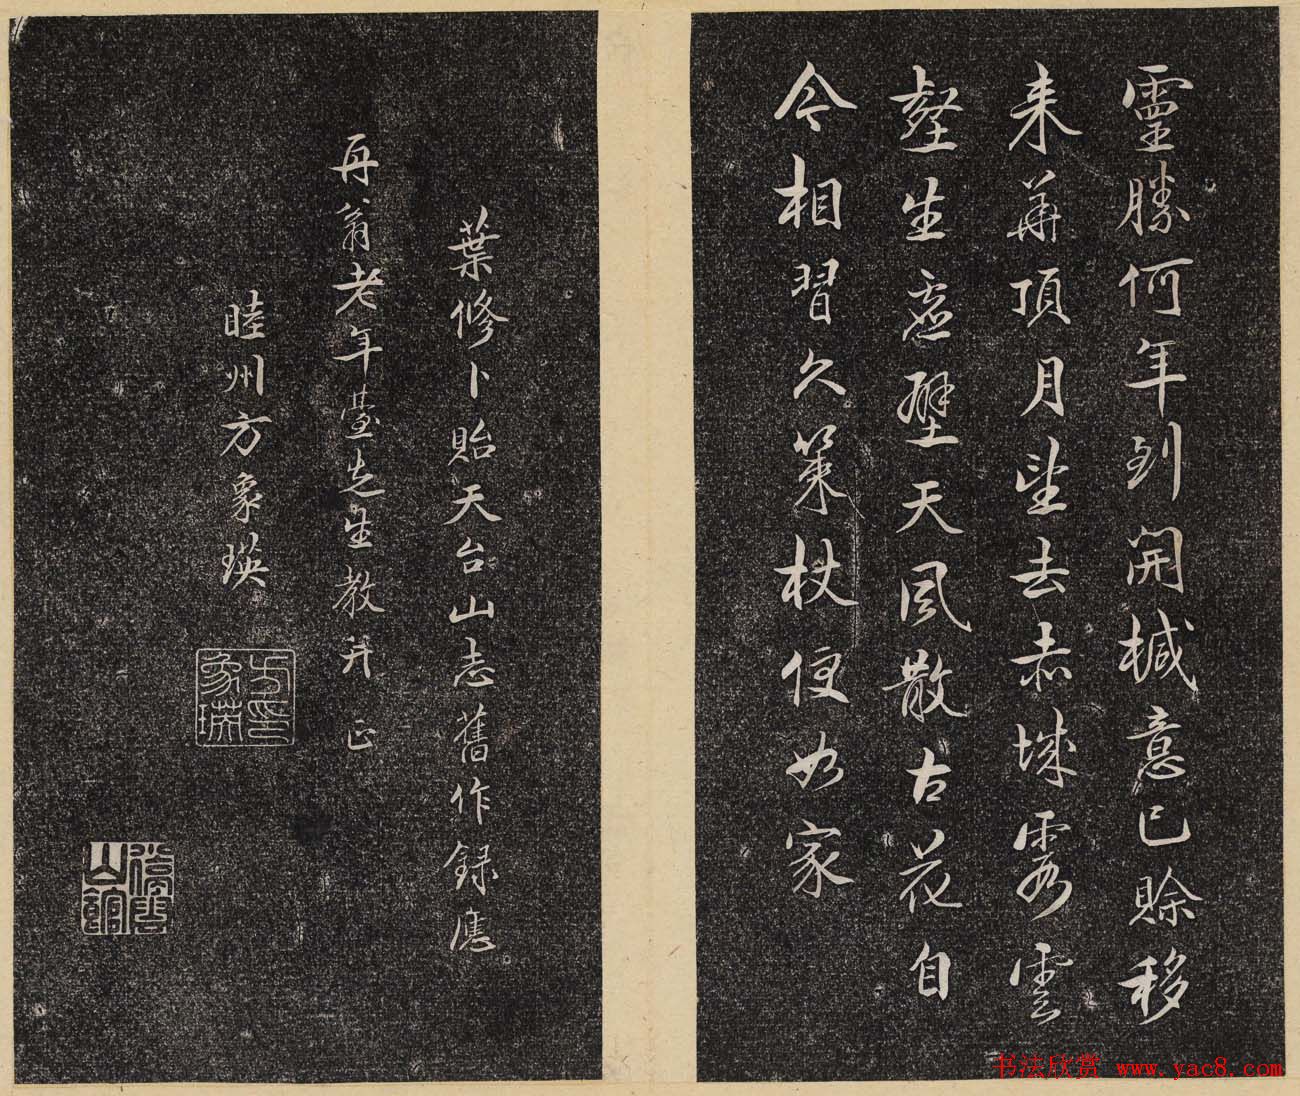 靈勝何年到開椷意已賒移
来華頂月望去赤城霞雲
壑生虛壁天風散古花自
今相習久策杖便如家
葉修卜貽天台山志舊作録應
再翁老年臺先生教并正
睦州方象瑛
方象瑛印
山館
书法欣赏 www.yac8.com